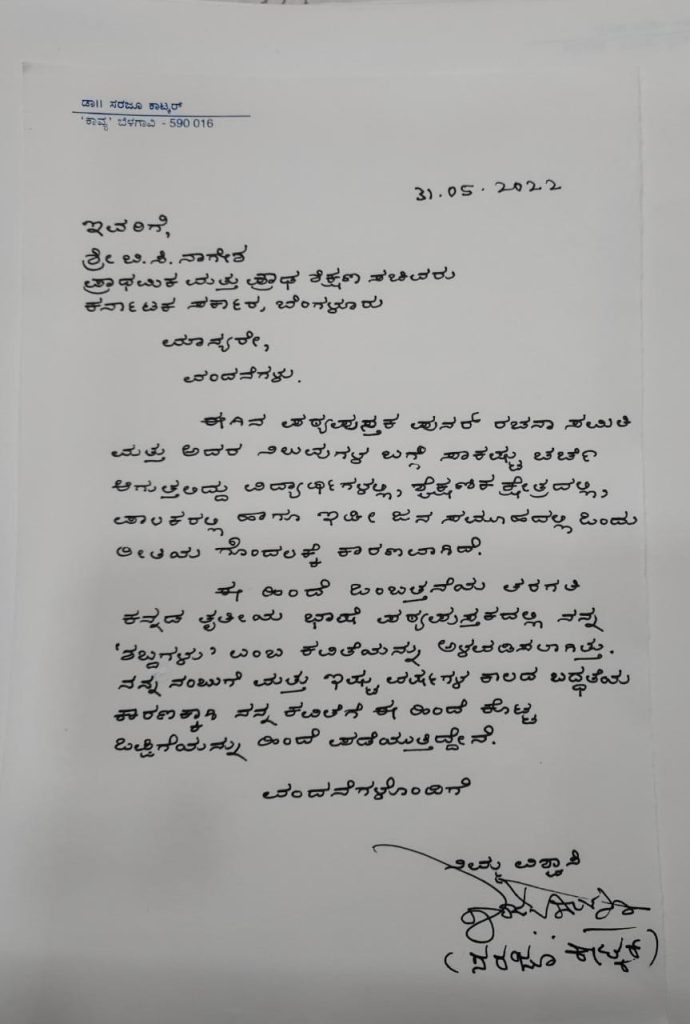 ಡಾ॥ ಸರಜೂ ಕಾಟ್ಕರ್
'ಕಾವ್ಯ' ಬೆಳಗಾವಿ - 590 016
31.05.2022
ಇವರಿಗೆ,
ಶ್ರೀ ಬಿ.ಸಿ. ನಾಗೇಶ
ಪ್ರಾಥಮಿಕ ಮತ್ತು ಪ್ರೌಢ ಶಿಕ್ಷಣ ಸಚಿವರು
ಕರ್ನಾಟಕ ಸರ್ಕಾರ, ಬೆಂಗಳೂರು
ಮಾನ್ಯರೇ,
ವಂದನೆಗಳು.
ಈಗಿನ ಪಠ್ಯಪುಸ್ತಕ ಪುನರ್ ರಚನಾ ಸಮಿತಿ
ಮತ್ತು ಅದರ ನಿಲುವುಗಳ ಬಗ್ಗೆ ಸಾಕಷ್ಟು ಚರ್ಚೆ
ಆಗುತ್ತಲಿದ್ದು ವಿದ್ಯಾರ್ಥಿಗಳಲ್ಲಿ, ಶೈಕ್ಷಣಿಕ ಕ್ಷೇತ್ರದಲ್ಲಿ,
ಪಾಲಕರಲ್ಲಿ ಹಾಗೂ ಇಡೀ ಜನ ಸಮೂಹದಲ್ಲಿ ಒಂದು
ರೀತಿಯ ಗೊಂದಲಕ್ಕೆ ಕಾರಣವಾಗಿದೆ.
ಈ ಹಿಂದೆ ಒಂಬತ್ತನೆಯ ತರಗತಿ
ಕನ್ನಡ ತೃತೀಯ ಭಾಷೆ ಪಠ್ಯಪುಸ್ತಕದಲ್ಲಿ ನನ್ನ
'ಶಬ್ದಗಳು' ಎಂಬ ಕವಿತೆಯನ್ನು ಅಳವಡಿಸಲಾಗಿತ್ತು.
ನನ್ನ ನಂಬುಗೆ ಮತ್ತು ಇಷ್ಟು ವರ್ಷಗಳ ಕಾಲದ ಬದ್ಧತೆಯ
ಕಾರಣಕ್ಕಾಗಿ ನನ್ನ ಕವಿತೆಗೆ ಈ ಹಿಂದೆ ಕೊಟ್ಟ
ಒಪ್ಪಿಗೆಯನ್ನು ಹಿಂದೆ ಪಡೆಯುತ್ತಿದ್ದೇನೆ.
ವಂದನೆಗಳೊಂದಿಗೆ
ನಿಮ್ಮ ವಿಶ್ವಾಸಿ
(ಸರಜೂ ಕಾಟ್ಕರ)